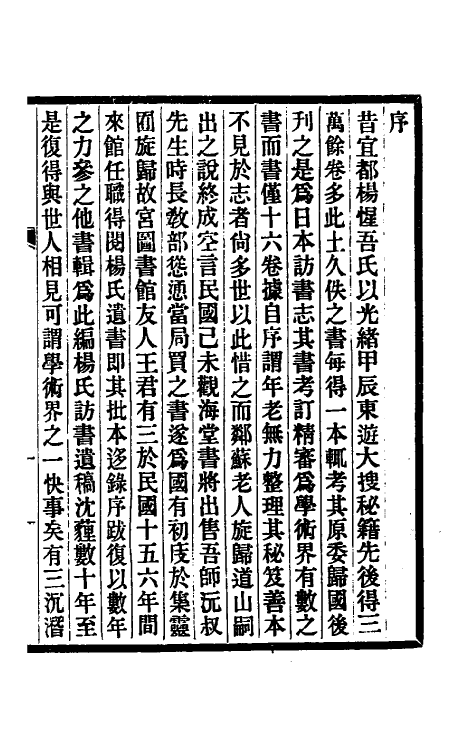 序
昔宜都楊惺吾氏以光緒甲辰東遊大搜秘籍先後得三
萬餘卷多此土久佚之書每得一本輒考其原委歸國後
刊之是爲日本訪書志其書考訂精審爲學術界有數之
書而書僅十六卷據自序謂年老無力整理其秘笈善本
不見於志者尙多世以此惜之而鄰蘇老人旋歸道山嗣
出之說終成空言民國己未觀海堂書將出售吾師沅叔
先生時長敎部慫恿當局買之書遂爲國有初庋於集靈
囿旋歸故宮圖書館友人王君有三於民國十五六年間
來館任職得閱楊氏遺書即其批本迻錄序跋復以數年
之力參之他書輯爲此編楊氏訪書遺稿沈薶數十年至
是復得與世人相見可謂學術界之一快事矣有三沉潛